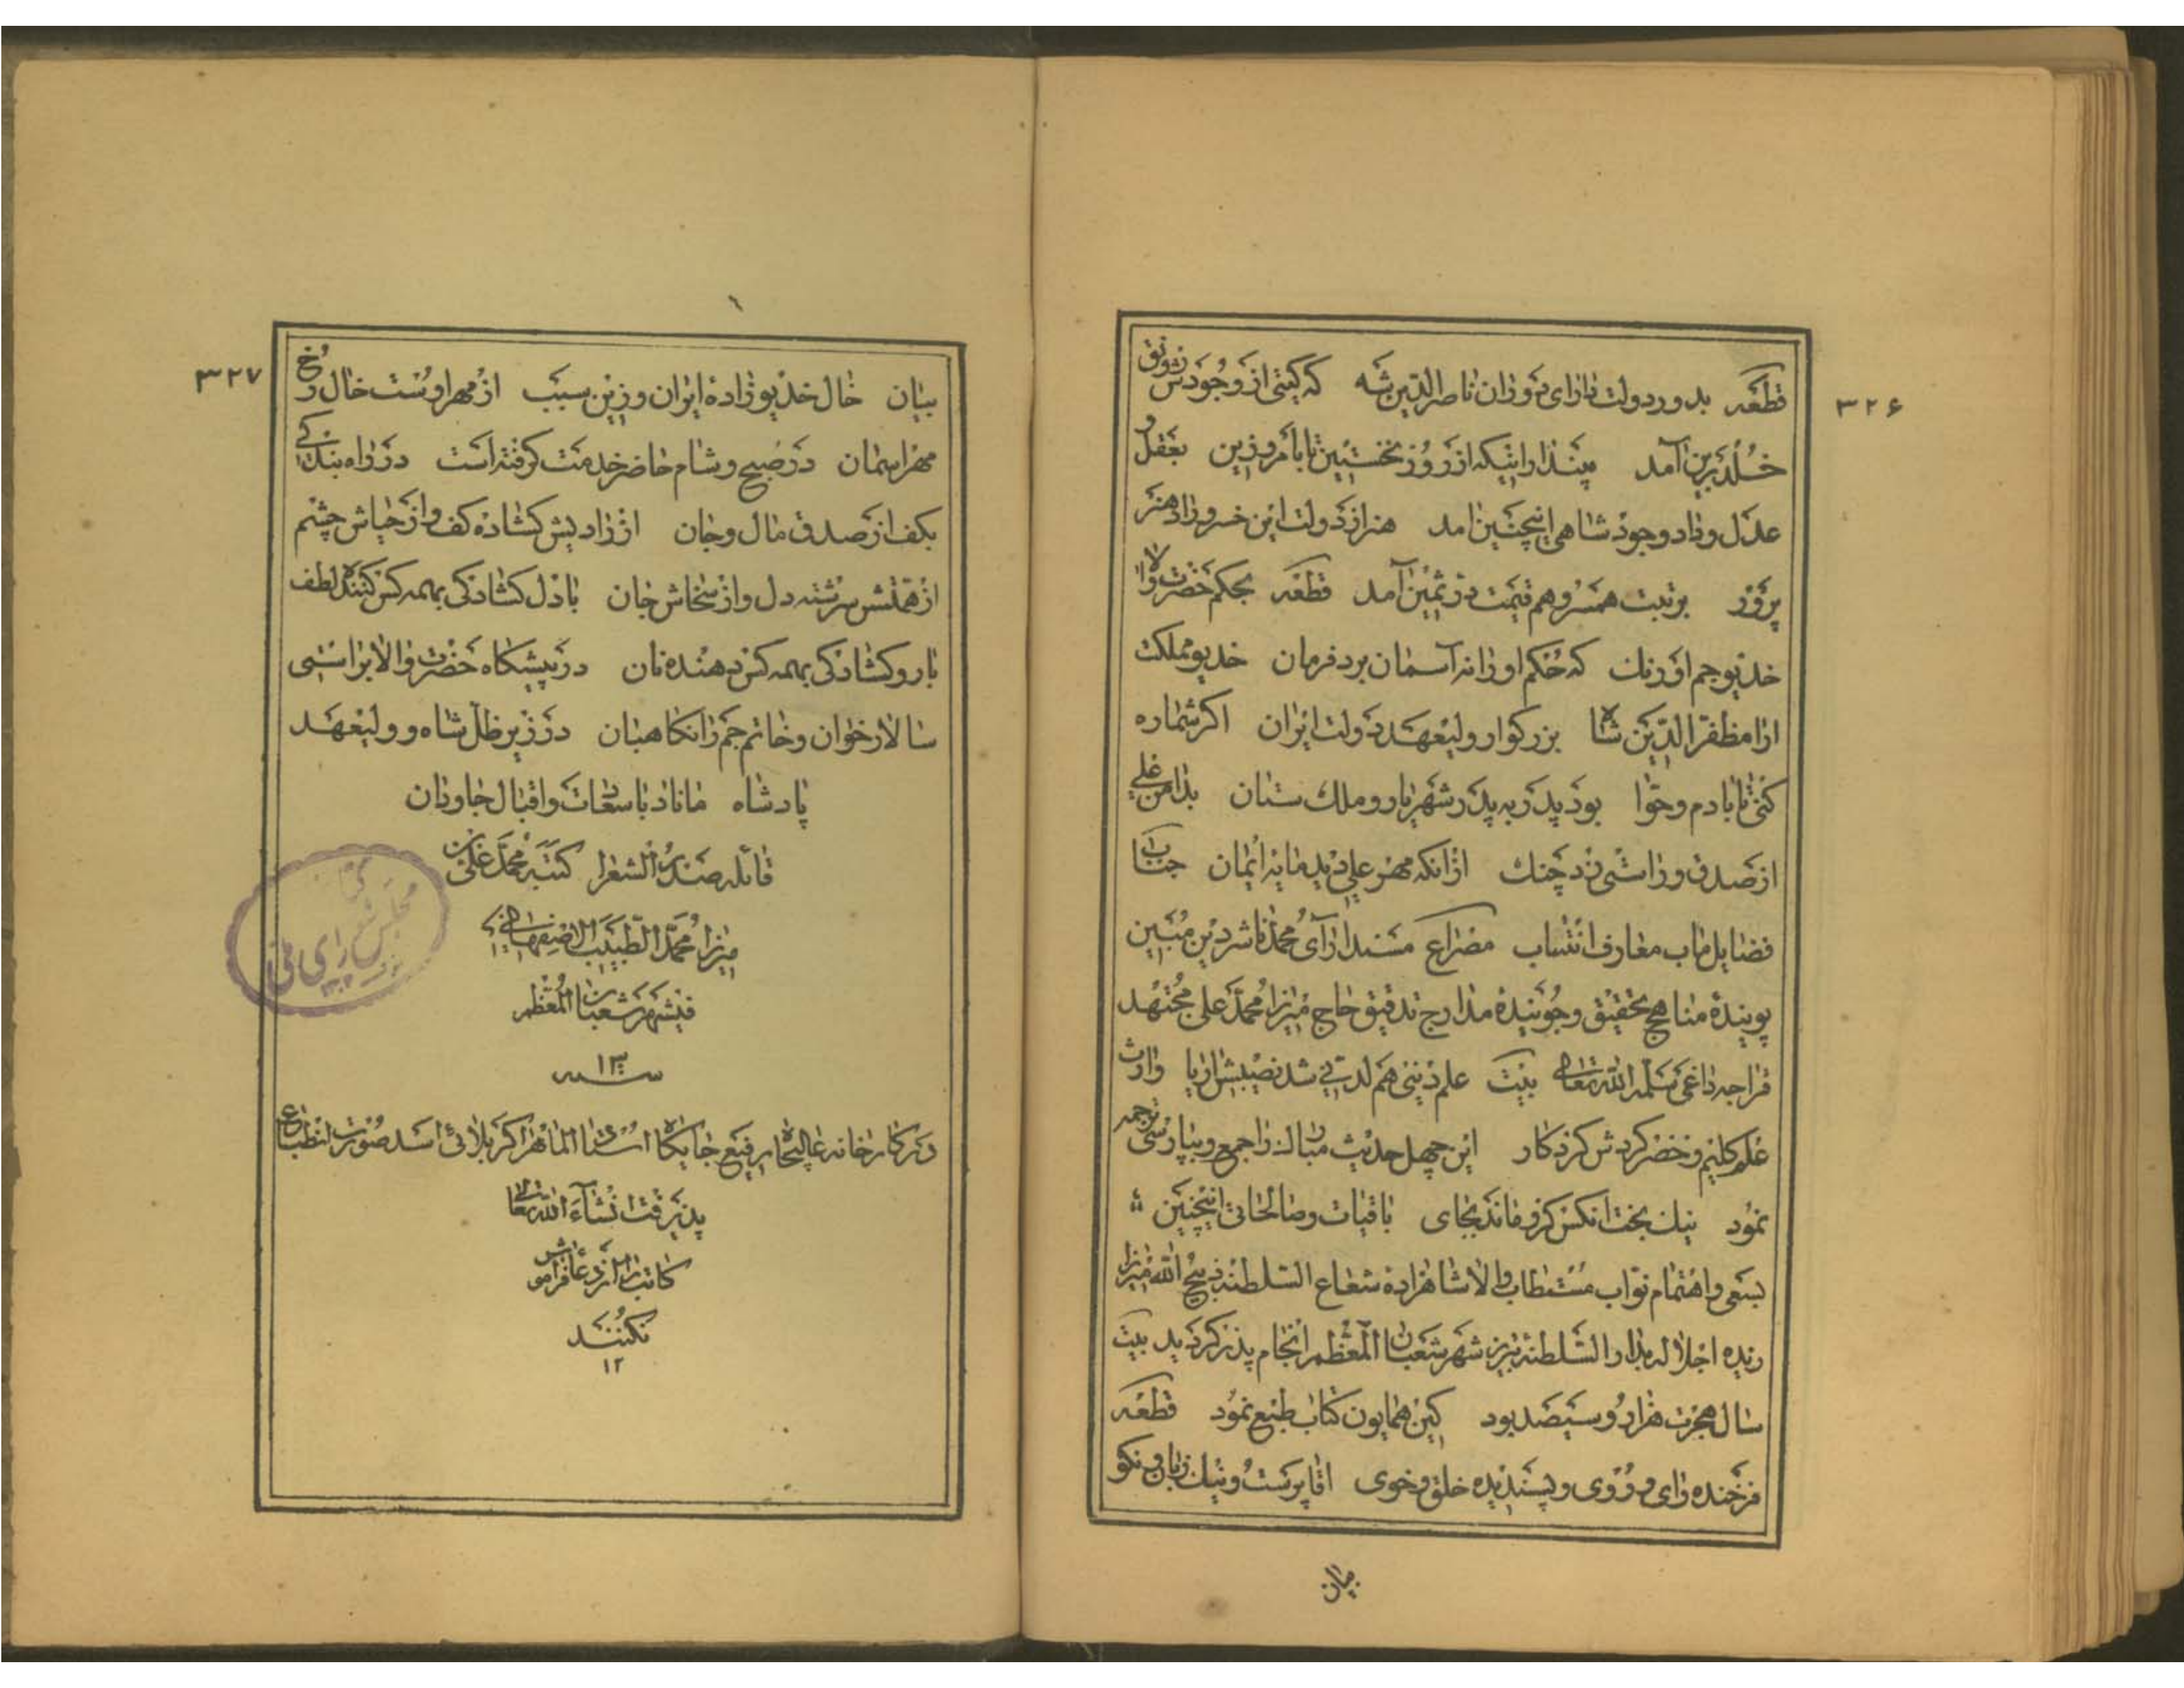 ۳۲۶
قطعه بدور دولت دارای دوران ناصرالدین شه که گیتی از وجودش رونق
خلد برین آمد مپندارا نیکه از روز نخستین تا بامروزین بعقل و
عدل و داد و جود شاهی اینچنین امد هنر از دولت این خسرو راد هنر
پرور برتبت همسر و هم قیمت در ثمین آمد قطعه بحکم حضرت والا
خدیو جم اورنك که حکم او زانه آسمان برد فرمان خدیو مملکت
ارا مظفر الدین شاه بزرکوار ولیعهد دولت ایران اکر شماره
کنی تا بادم و حوّا بود پدر به پدر شهریار و ملك ستان بدامن علی
از صدق و راستی زد چنك ازانکه مهر علی دید مایه ایمان جناب
فضایل ماب معارف انتساب مصراع مسند ارآی محمد ناشر دین مبین
پوینده مناهج تحقیق و جوینده مدارج تدقیق حاج میرزا محمد علی مجتهد
قراجه داغی سلمه الله تعالی بیت علم دینی هم لدنی شد نصیبش از یا وارث
علم کلیم و خضر کردش کردکار این چهل حدیث مبارك را جمع و بپارسی ترجمه
نمود نیك بخت آنکس کزو ماند بجای باقیات و صالحاتی اینچنین
بسعی و اهتمام نواب مستطاب والا شاهزاده شعاع السلطنه ذبیح الله میرزا
زیده اجلاله بدار السلطنه تبریز شهر شعبان المعظم انجام پذیر کردید بیت
سال هجرت هزار و سیصد بود کین همایون کتاب طبع نمود قطعه
فرخنده رای و روی و پسندیده خلق و خوی اقا پرست و نیك زبان و نکو
بیان
۳۲۷
بیان خال خدیو زادهٔ ایران و زین سبب از مهر اوست خال رخ
مهر اسمان در صبح و شام حاضر خدمت کرفته است در راه بندکی
بکف از صدق مال و جان از رادیش کشاده کف و از حیاش چشم
از همتش سرشته دل و از سخاش جان با دل کشادکی بهمه کس کننده لطف
با رو کشادکی بهمه کس دهنده نان در پیشکاه حضرت والا براستی
سالار خوان و خاتم جم را نکاهبان در زیر ظل شاه و ولیعهد
پادشاه ماناد با سعادت و اقبال جاودان
قائله صدر الشعرا کتبه محمد علی بن
میرزا محمد الطبیب الاصفهانی
فی شهر شعبان المعظم
سنه ۱۳
در کارخانه عالیجاه رفیع جایکاه استاد الماهر اکر بلائی اسد صورت انطباع
پذیرفت انشاء الله تعالی
کاتب را از دعا فراموش
نکنند
۱۲
مجلس شورای ملی